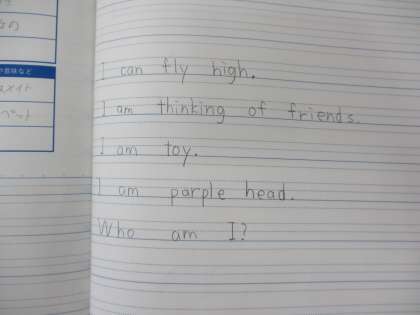 I can fly high.
I am thinking of friends.
I am toy.
I am parple head.
Who am I?